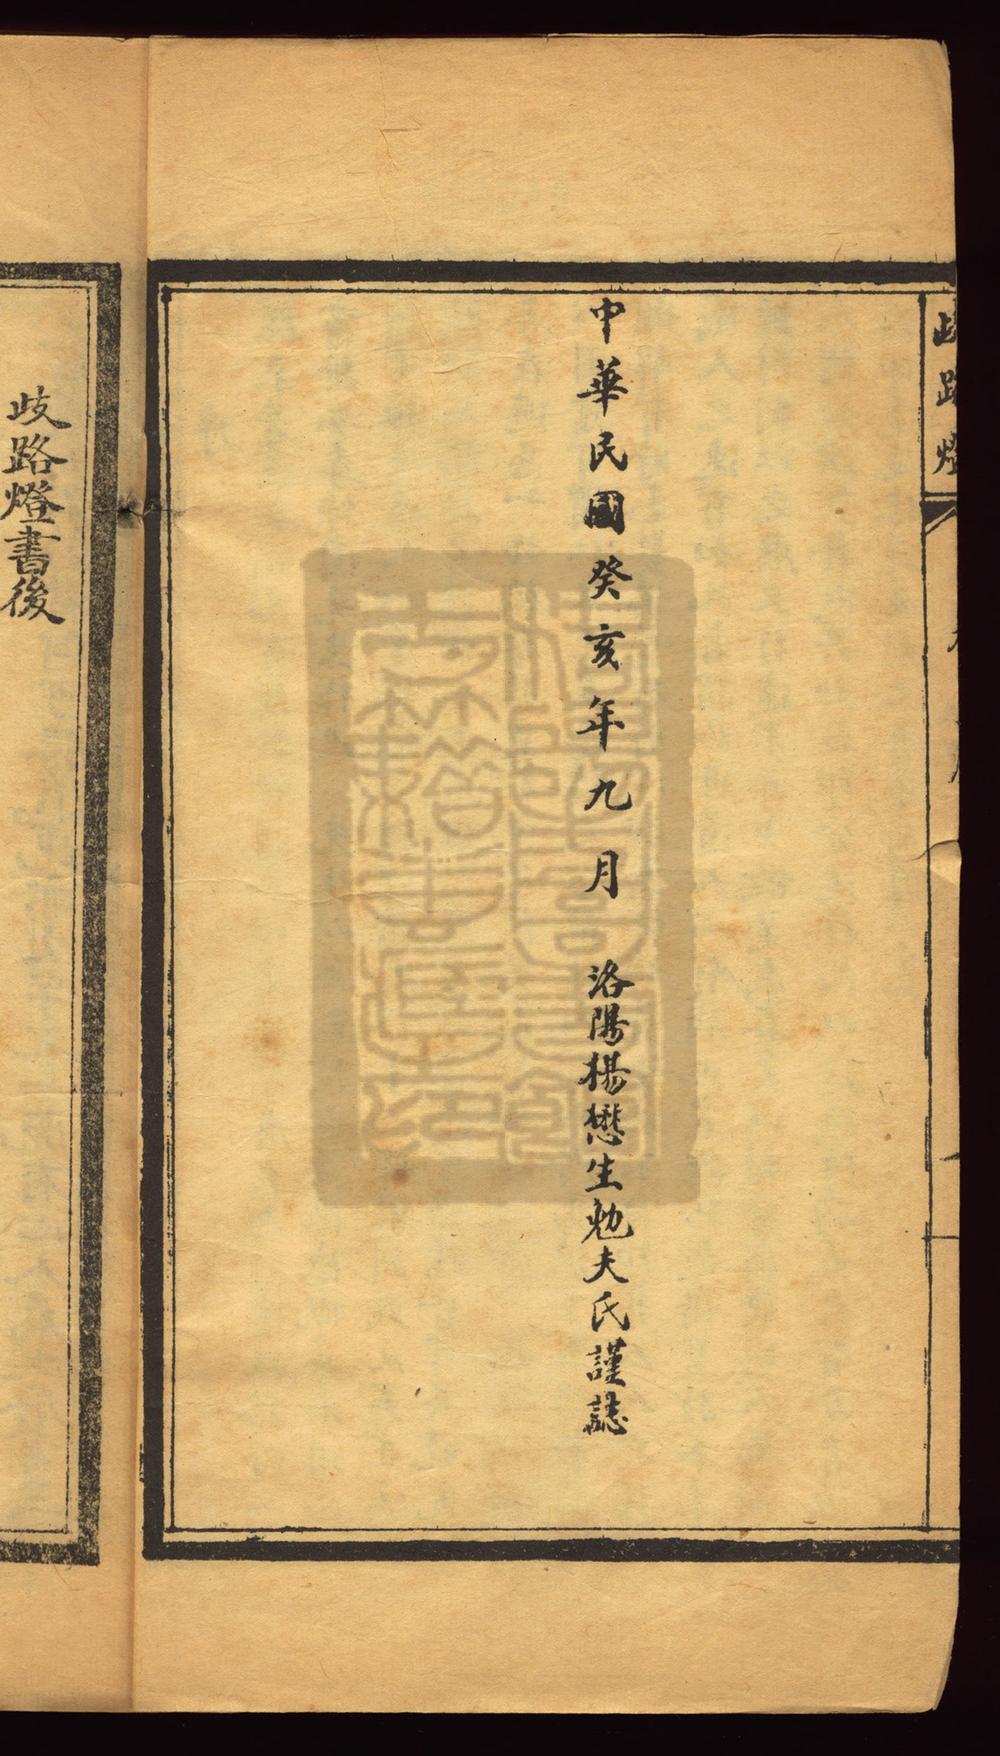 歧路燈
中華民國癸亥年九月　洛陽楊懋生勉夫氏謹誌
歧路燈書後